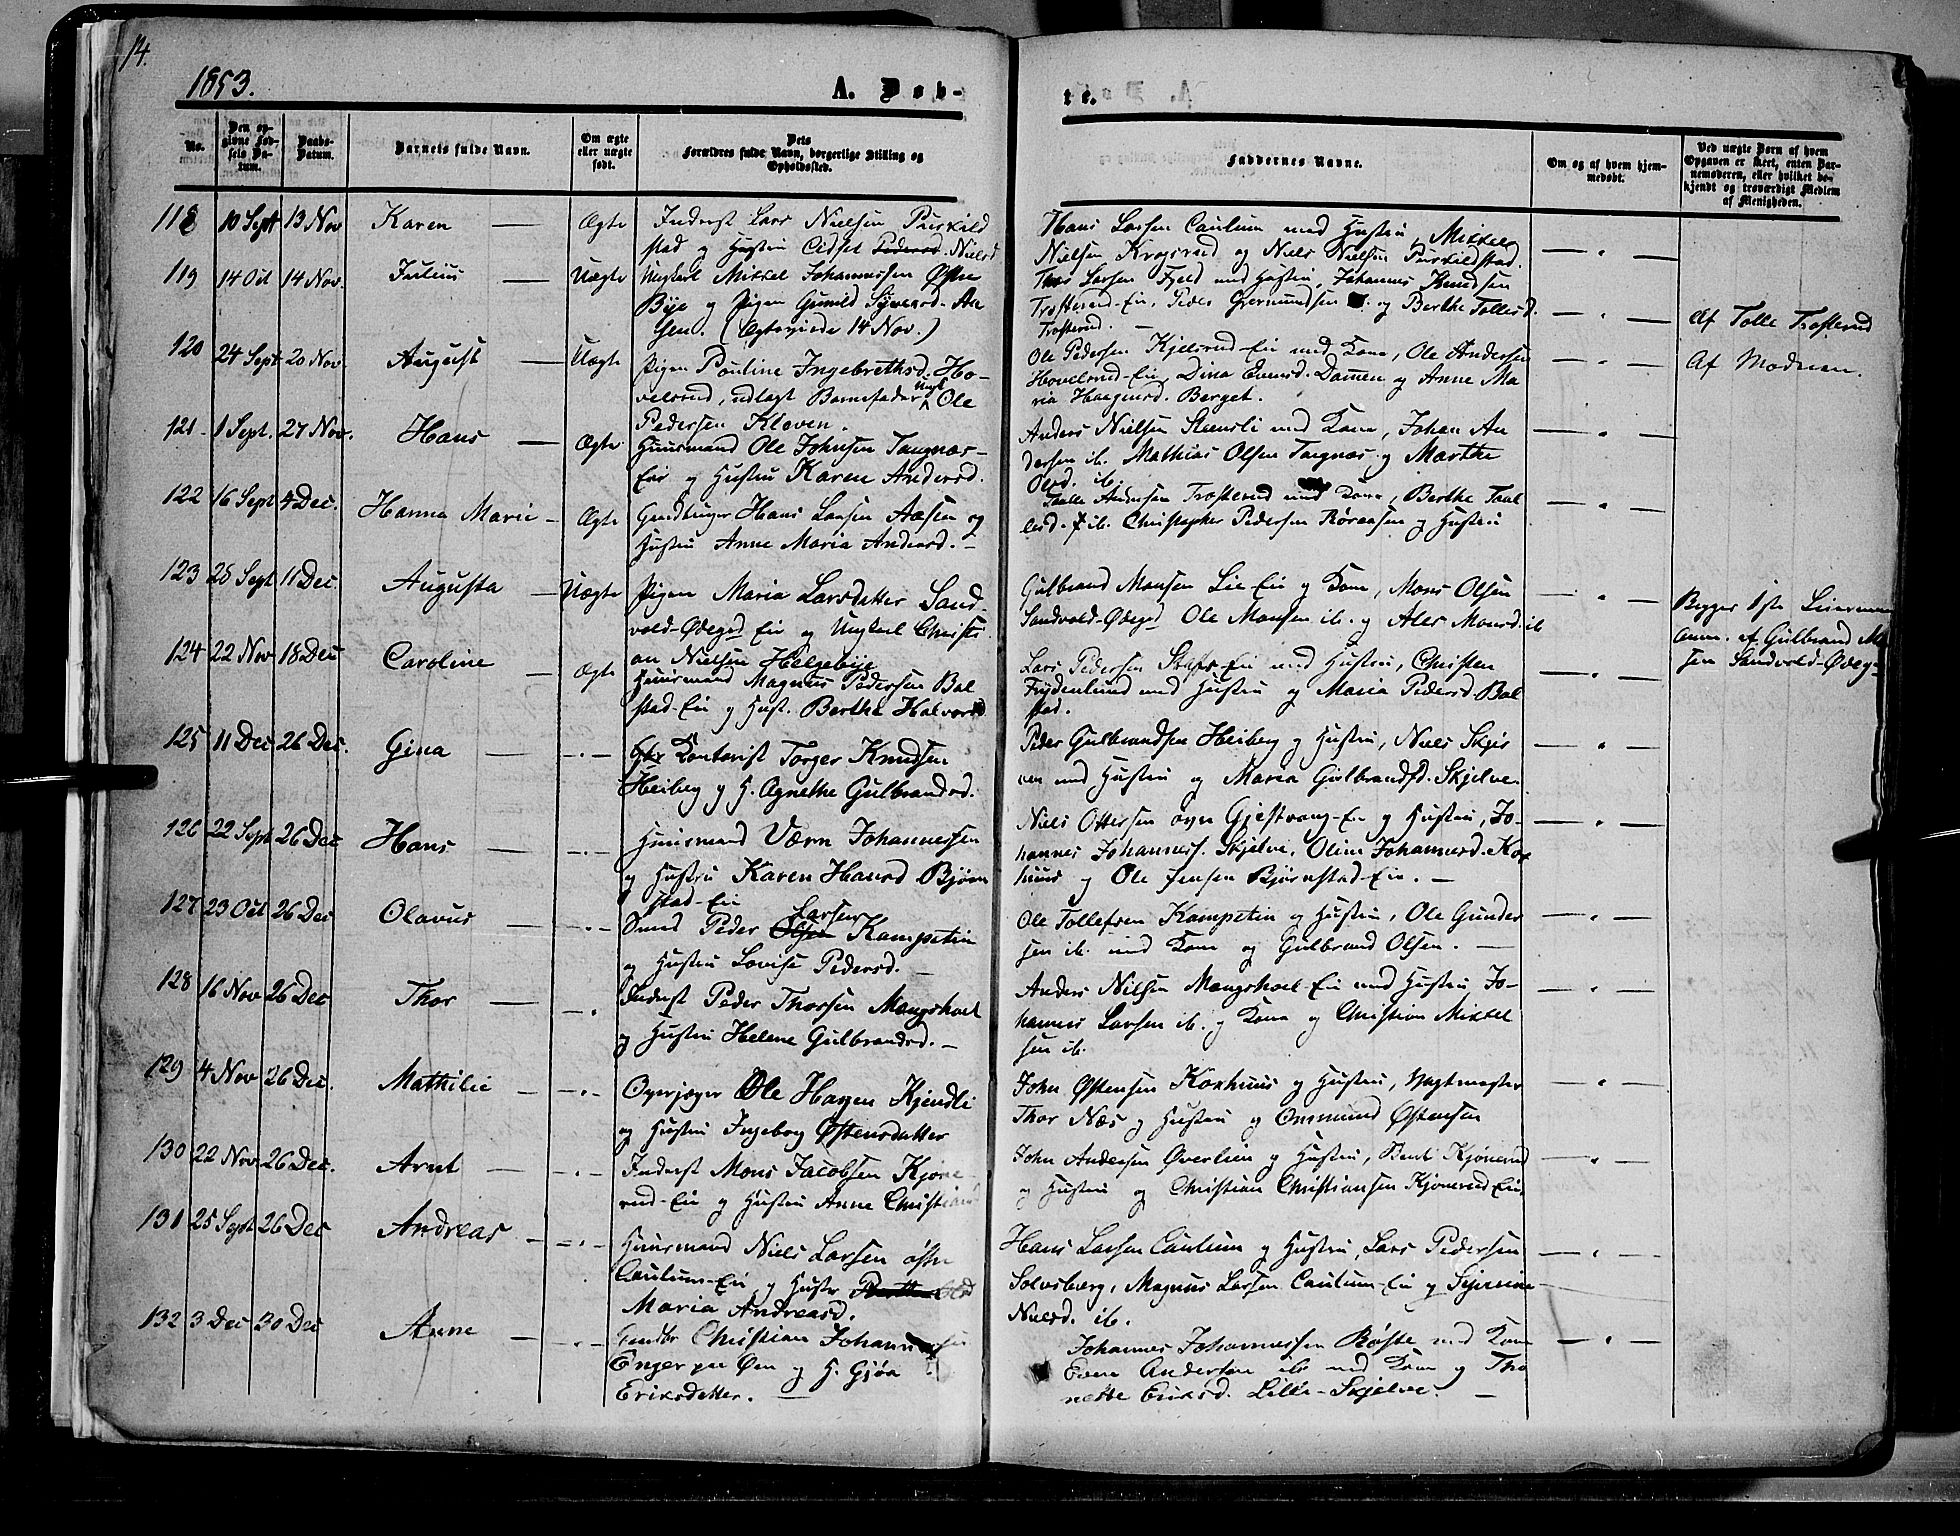 14.
1853.
A. Døb-
te.
No.
Den opgivne Fødsels Datum.
Daabs-Datum.
Barnets fulde Navn.
Om ægte eller uægte født.
Dets Forældres fulde Navn, borgerlige Stilling og Opholdssted.
Faddernes Navne.
Om og af hvem hjemmedøbt.
Ved uægte Børn af hvem Opgaven er skeet, enten Barnemoderen, eller hvilket bekjendt og troværdigt Medlem af Menigheden.
118 10 Sept 13 Nov Karen — Ægte Inderst Lars Nielsen Purkild
stad og Hustru Pedersd. Nielsd
Hans Larsen Caulum med Hustru, Mikkel
Nielsen Krogsrud og Niels Nielsen Purkildstad.
119 14 Oct 14 Nov. Julius — Uægte Ungkarl Mikkel Johannessen Østre
Bye og Pigen Gunild Syversd. Aa
sen. (Egteviede 14 Nov.)
Thos Larsen Fjeld med Hustru, Johannes Knudsen
Trosterud-Eie, Peder Gremundsen og Berthe Tollesd.
Trosterud. —
Af Tolle Trosterud
120 24 Sept 20 Nov August — Uægte Pigen Pauline Ingebrethsd. Ho-
velsrud, udlagt Barnefader Ungk Ole
Pedersen Kloven.
Ole Pedersen Kjelsrud-Eie med Kone, Ole Andersen
Hovelsrud-Eie, Dina Evensd. Dammen og Anne Ma
ria Haagensd. Berget.
Af Modren.
121. 1 Sept. 27 Nov. Hans — Ægte Huusmand Ole Johnsen Tangnæs-
Eie og Hustru Karen Andersd.
Anders Nielsen med Kone, Johan An
dersen ib. Mathias Olsen Tangnæs og Marthe
Olsd. ib.
122 16 Sept 4 Dec. Hanna Marie — Ægte Hans Larsen Aasen og
Hustru Anne Maria Andersd. —
Taalle Andersen Trosterud med Kone, Berthe Taal
lesd. ib. Christopher Pedersen Røraasen og Hustru
123 28 Sept 11 Dec. Augusta — Uægte Pigen Maria Larsdatter Sand-
vold-Ødegsd Eie og Ungkarl Christi
an Nielsen Helgebye
Gulbrand Monsen Lie-Eie og Kone, Mons Olsen
Sandvold-Ødegsd Ole Monsen ib. og Ales Monsd. ib
Begges 1ste Leiermaal
Anm. af Gulbrand Mo
sen Sandvold-Ødeg-
124 22 Nov 18 Dec Caroline — Ægte Huusmand Magnus Pedersen Bal
stad-Eie og Hust. Berthe Halvorsd
Lars Pedersen Eie med Hustru, Christen
Frydenlund med Hustru og Maria Pedersd. Bal
stad.
125 11 Dec 26 Dec. Gina — Kontorist Torger Knudsen
Heiberg og H. Agnethe Gulbrandsd.
Peder Gulbrandsen Heiberg og Hustru, Niels Skjel
ven med Hustru og Maria Gulbrandsd. Skjelve.
126 22 Sept 26 Dec Hans — Huusmand Værn Johannessen
og Hustru Karen Hansd Bjørn
stad-Eie
Niels Ottersen øvre Gjestvang-Eie og Hustru, Jo-
hannes Johanness. Skjelve, Oline Johannesd. Kox
huus og Ole Jensen Bjørnstad-Eie. —
127 23 Oct 26 Dec Olavus — Smed Peder Olsen Larsen Kampetin
og Hustru Lovise Pedersd. —
Ole Tollefsen Kampetin og Hustru, Ole Gunder
sen ib. med Kone og Gulbrand Olsen. —
128 16 Nov 26 Dec Thor — Inderst Peder Thorsen Mangshoel
og Hustru Helene Gulbrandsd. —
Anders Nilsen Mangshoel-Eie med Hustru Jo-
hannes Larsen ib. og Kone og Christian Mikkel
sen ib.
129 4 Nov 26 Dec. Mathilie — Ole Hagen Kjendli
og Hustru Ingeborg Østensdatter
John Østensen Koxhuus og Hustru, Vagtmester
Thor Næs og Hustru og Ommund Østensen
130 22 Nov 26 Dec. Arnt — Inderst Mons Jacobsen Kjøne
rud-Eie og Hustru Anne Christians
John Andersen Øverlien og Hustru, Bendt Kjønerud
og Hustru og Christian Christiansen Kjønerud Eie
131 25 Sept 26 Dec Andreas — Huusmand Niels Larsen østre
Caulum-Eie og Hustr
Maria Andreasd.
Hans Larsen Caulum og Hustru, Lars Pedersen
Solvsberg, Magnus Larsen Caulum-Eie og
Nielsd. ib.
132 3 Dec 30 Dec Anne — Christian Johannessen
Enger paa Øen og H. Gjøa
Eriksdatter. —
Johannes Johannessen Røste med Kone
Even Andersen ib med Kone og Tho
nette Eriksd. Lille-Skjelve. —